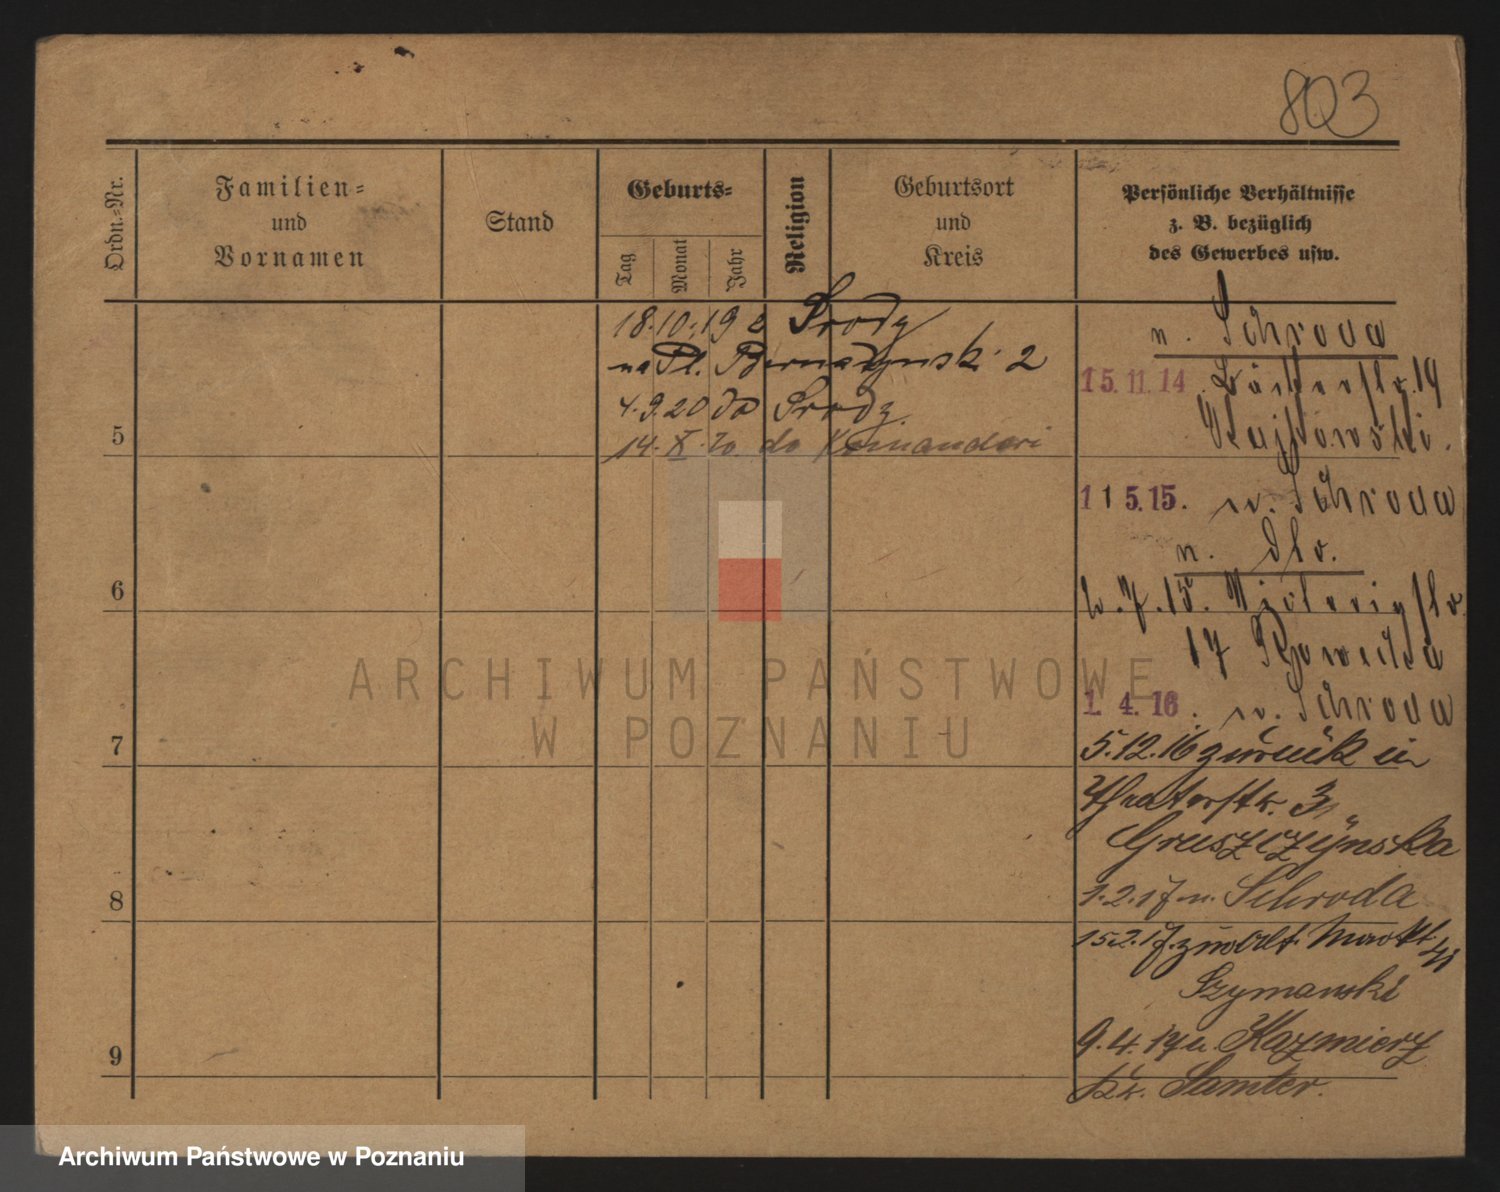 803
Ordn.-Nr.
Familien-
und
Vornamen
Stand
Geburts-
Tag
Monat
Jahr
Religion
Geburtsort
und
Kreis
Persönliche Verhältnisse
z. B. bezüglich
des Gewerbes usw.
18.10.19 z Środy
na Pl. Bernadynsk. 2
4.9.20 do Środy
14. X. 20 do
n. Schroda
15.11.14 . 19
11 5.15. n. Schroda
n. dtv.
7.15.
17
1. 4. 16 . n. Schroda
5.12.16 zurück in
Theaterstr. 3
Gruszczynska
1.2.17 n. Schroda
15.2.17 zur. Alt. Markt
Szymanski
9.4.17 n. Kazmierz
Kr. Samter.
5
6
7
8
9
ARCHIWUM PAŃSTWOWE
W POZNANIU
Archiwum Państwowe w Poznaniu